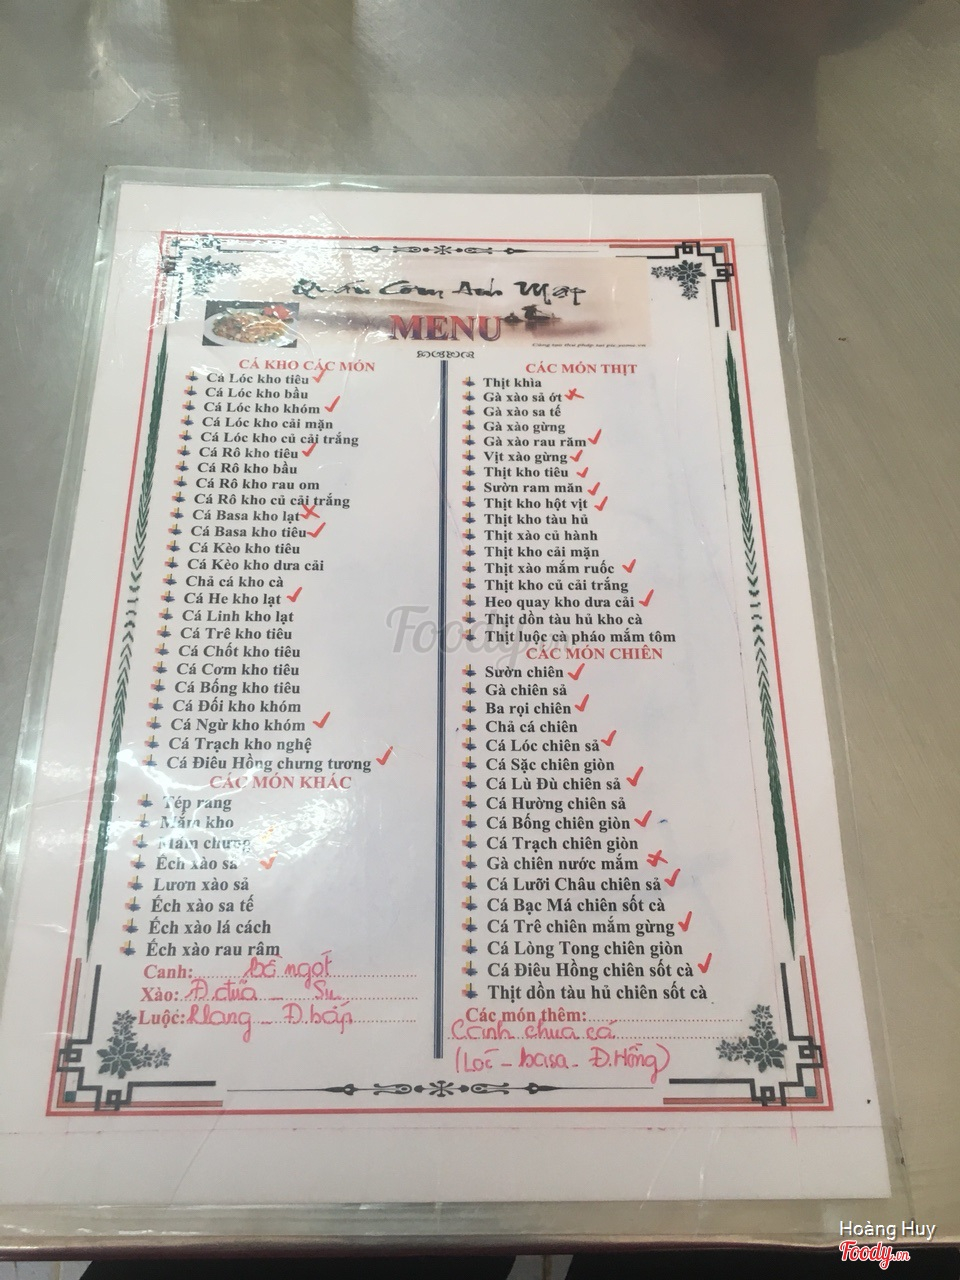 Quán Cơm Anh Mập
MENU
CÁ KHO CÁC MÓN
Cá Lóc kho tiêu
Cá Lóc kho bầu
Cá Lóc kho khóm
Cá Lóc kho cải mặn
Cá Lóc kho củ cải trắng
Cá Rô kho tiêu
Cá Rô kho bầu
Cá Rô kho rau om
Cá Rô kho củ cải trắng
Cá Basa kho lạt
Cá Basa kho tiêu
Cá Kèo kho tiêu
Cá Kèo kho dưa cải
Chả cá kho cà
Cá He kho lạt
Cá Linh kho lạt
Cá Trê kho tiêu
Cá Chốt kho tiêu
Cá Cơm kho tiêu
Cá Bống kho tiêu
Cá Đối kho khóm
Cá Ngừ kho khóm
Cá Trạch kho nghệ
Cá Điêu Hồng chưng tương
CÁC MÓN KHÁC
Tép rang
Mắm kho
Mắm chưng
Ếch xào sả
Lươn xào sả
Ếch xào sa tế
Ếch xào lá cách
Ếch xào rau râm
Canh: bồ ngót
Xào: Đ.đũa - Su
Luộc: Rlang - Đ.bắp
CÁC MÓN THỊT
Thịt khìa
Gà xào sả ớt
Gà xào sa tế
Gà xào gừng
Gà xào rau răm
Vịt xào gừng
Thịt kho tiêu
Sườn ram mặn
Thịt kho hột vịt
Thịt kho tàu hủ
Thịt xào củ hành
Thịt kho cải mặn
Thịt xào mắm ruốc
Thịt kho củ cải trắng
Heo quay kho dưa cải
Thịt dồn tàu hủ kho cà
Thịt luộc cà pháo mắm tôm
CÁC MÓN CHIÊN
Sườn chiên
Gà chiên sả
Ba rọi chiên
Chả cá chiên
Cá Lóc chiên sả
Cá Sặc chiên giòn
Cá Lù Đù chiên sả
Cá Hường chiên sả
Cá Bống chiên giòn
Cá Trạch chiên giòn
Gà chiên nước mắm
Cá Lưỡi Châu chiên sả
Cá Bạc Má chiên sốt cà
Cá Trê chiên mắm gừng
Cá Lòng Tong chiên giòn
Cá Điêu Hồng chiên sốt cà
Thịt dồn tàu hủ chiên sốt cà
Các món thêm:
Canh chua cá
(Lóc - basa - Đ.Hồng)
Foody.vn
Hoàng Huy
Foody.vn